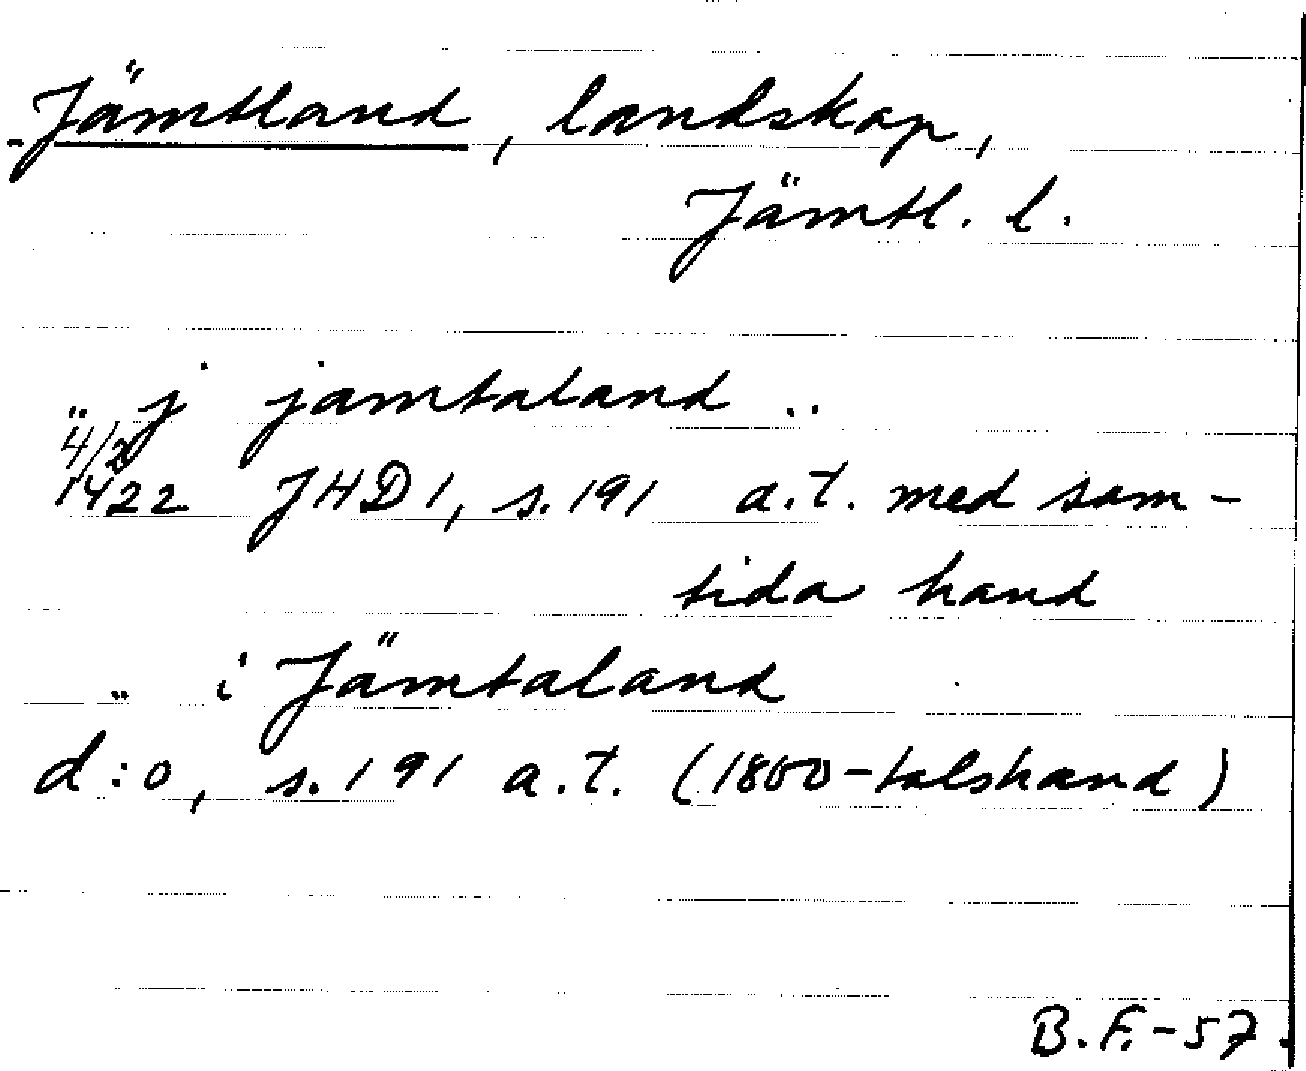 Jämtland, landskap,
Jämtl. l.
j jamtaland ..
" 4/2
1422 JHD 1, s. 191 a.t. med sam-
tida hand
" i Jämtaland
d:o, s. 191 a.t. (1800-talshand)
B.F.-57.